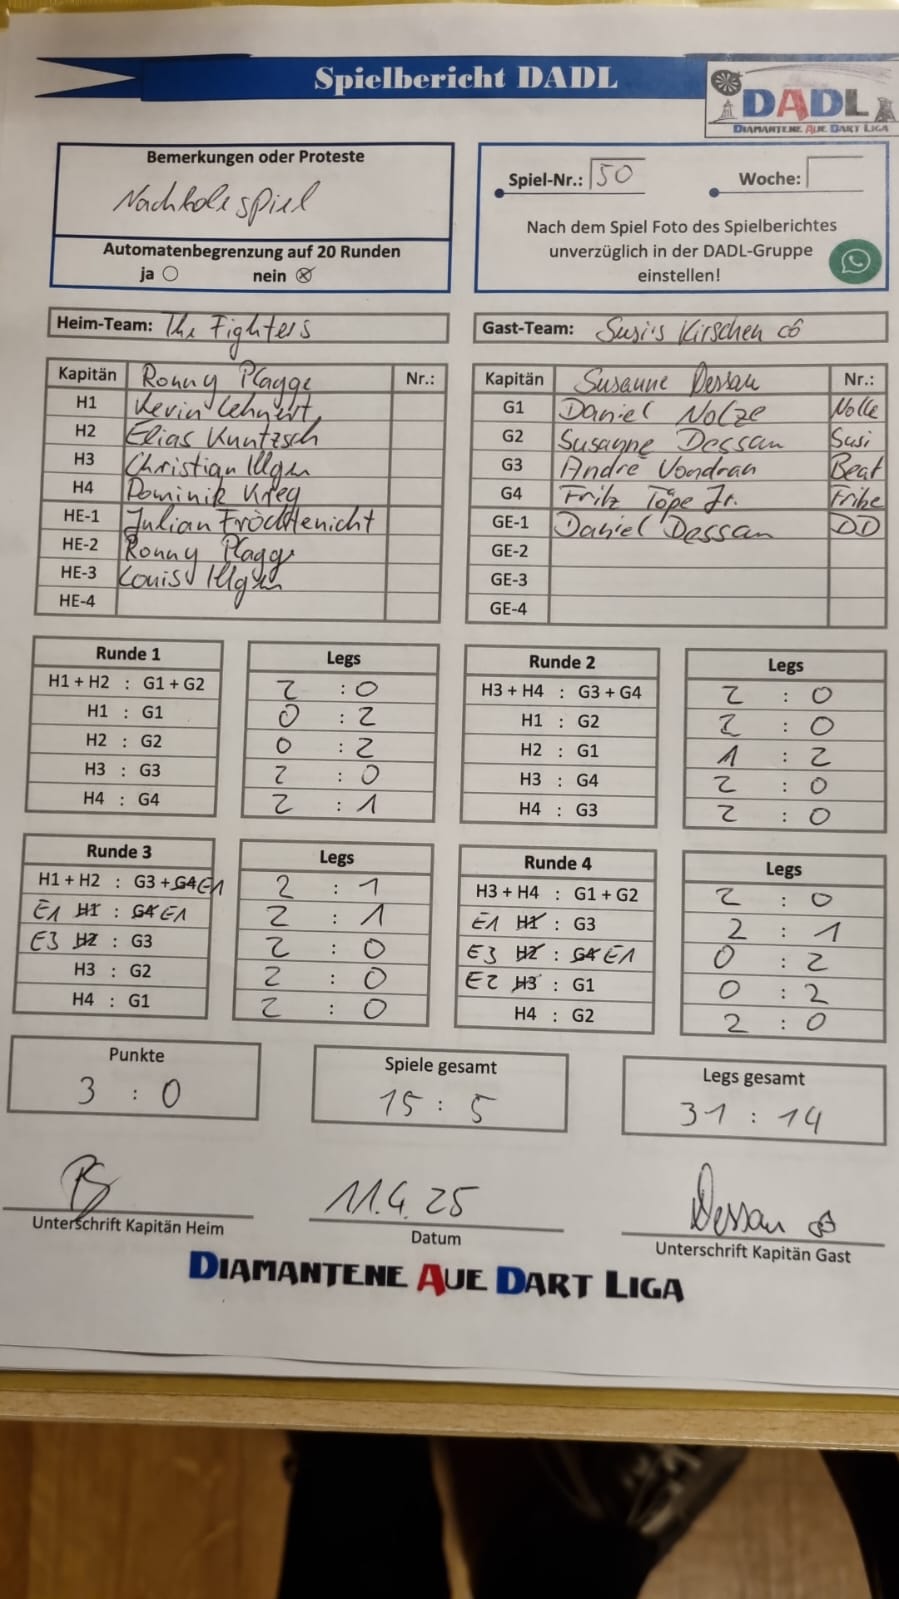 Spielbericht DADL
DADL
DIAMANTENE AUE DART LIGA
Bemerkungen oder Proteste
Nachholespiel
Automatenbegrenzung auf 20 Runden
ja nein
Spiel-Nr.: 50 Woche:
Nach dem Spiel Foto des Spielberichtes
unverzüglich in der DADL-Gruppe
einstellen!
Heim-Team: The Fighters
Gast-Team: Susi's Kirschen
Kapitän Ronny Plagge Nr.:
H1 Kevin Lehnert
H2 Elias Kuntzsch
H3 Christian Illgen
H4 Dominik Krieg
HE-1 Julian Fröchtenicht
HE-2 Ronny Plagge
HE-3 Louis Illgen
HE-4
Kapitän Susanne Dessau Nr.:
G1 Daniel Nolze Nolle
G2 Susanne Dessau Susi
G3 Andre Vondran Beat
G4 Fritz Töpe Jr. Fribe
GE-1 Daniel Dessau DD
GE-2
GE-3
GE-4
Runde 1 Legs
H1 + H2 : G1 + G2 2 : 0
H1 : G1 0 : 2
H2 : G2 0 : 2
H3 : G3 2 : 0
H4 : G4 2 : 1
Runde 2 Legs
H3 + H4 : G3 + G4 2 : 0
H1 : G2 2 : 0
H2 : G1 1 : 2
H3 : G4 2 : 0
H4 : G3 2 : 0
Runde 3 Legs
H1 + H2 : G3 + G4 E1 2 : 1
E1 H1 : G4 E1 2 : 1
E3 H2 : G3 2 : 0
H3 : G2 2 : 0
H4 : G1 2 : 0
Runde 4 Legs
H3 + H4 : G1 + G2 2 : 0
E1 H1 : G3 2 : 1
E3 H2 : G4 E1 0 : 2
E2 H3 : G1 0 : 2
H4 : G2 2 : 0
Punkte
3 : 0
Spiele gesamt
15 : 5
Legs gesamt
31 : 14
Unterschrift Kapitän Heim
11.4.25
Datum
Dessau
Unterschrift Kapitän Gast
DIAMANTENE AUE DART LIGA